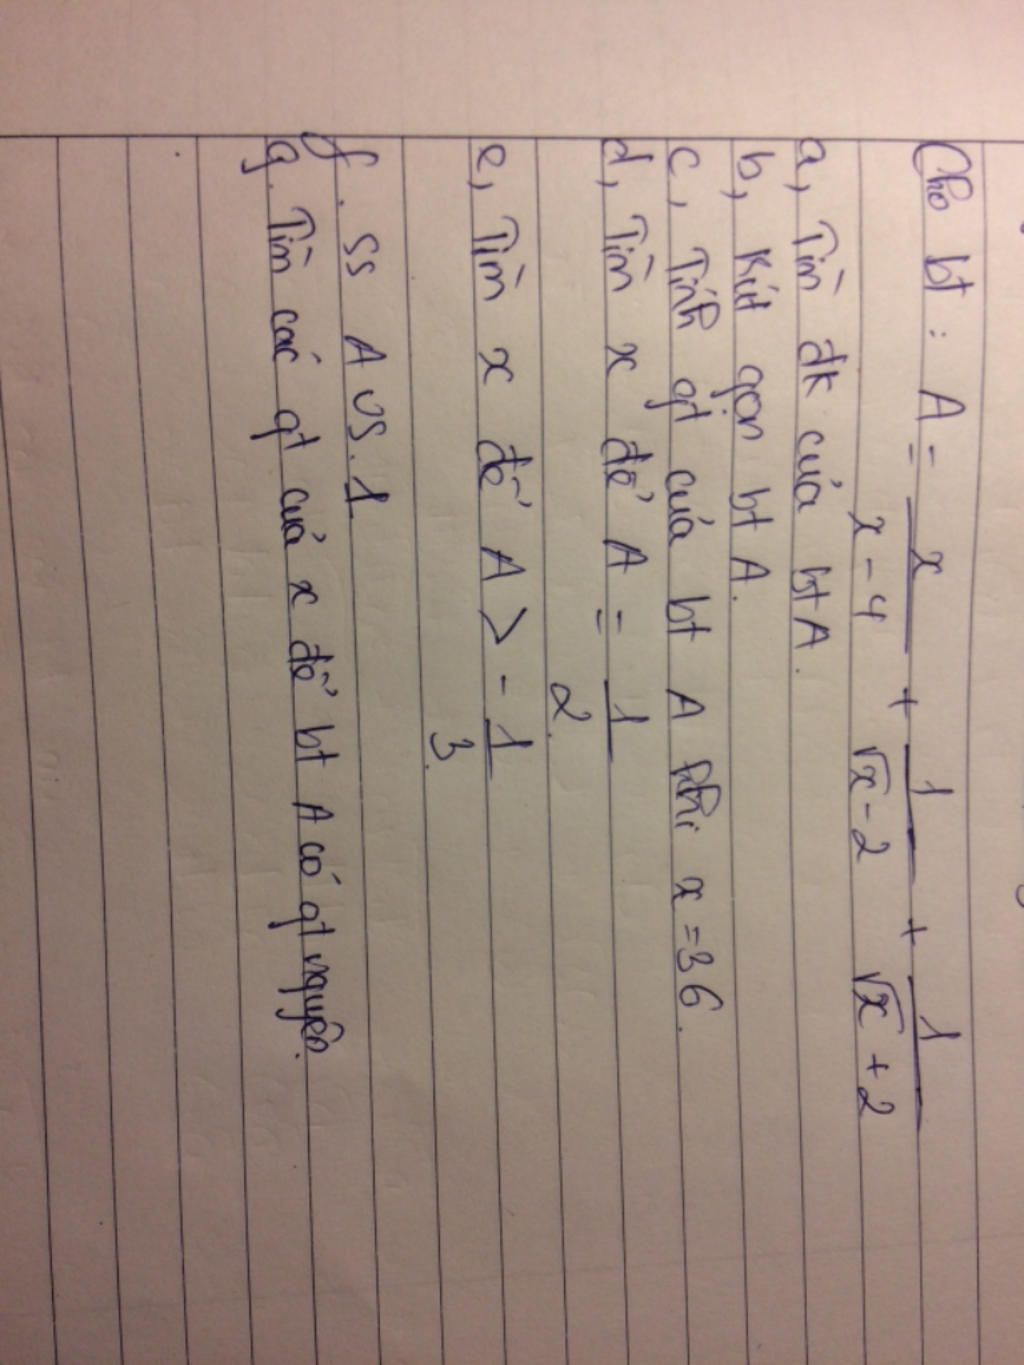 Cho bt : A = x/x-4 + 1/√x-2 + 1/√x+2
a, Tìm đk của bt A.
b, Rút gọn bt A.
c, Tính gt của bt A khi x = 36.
d, Tìm x để A = 1/2.
e, Tìm x để A > -1/3.
f. SS A vs. 1
g. Tìm các gt của x để bt A có gt nguyên.